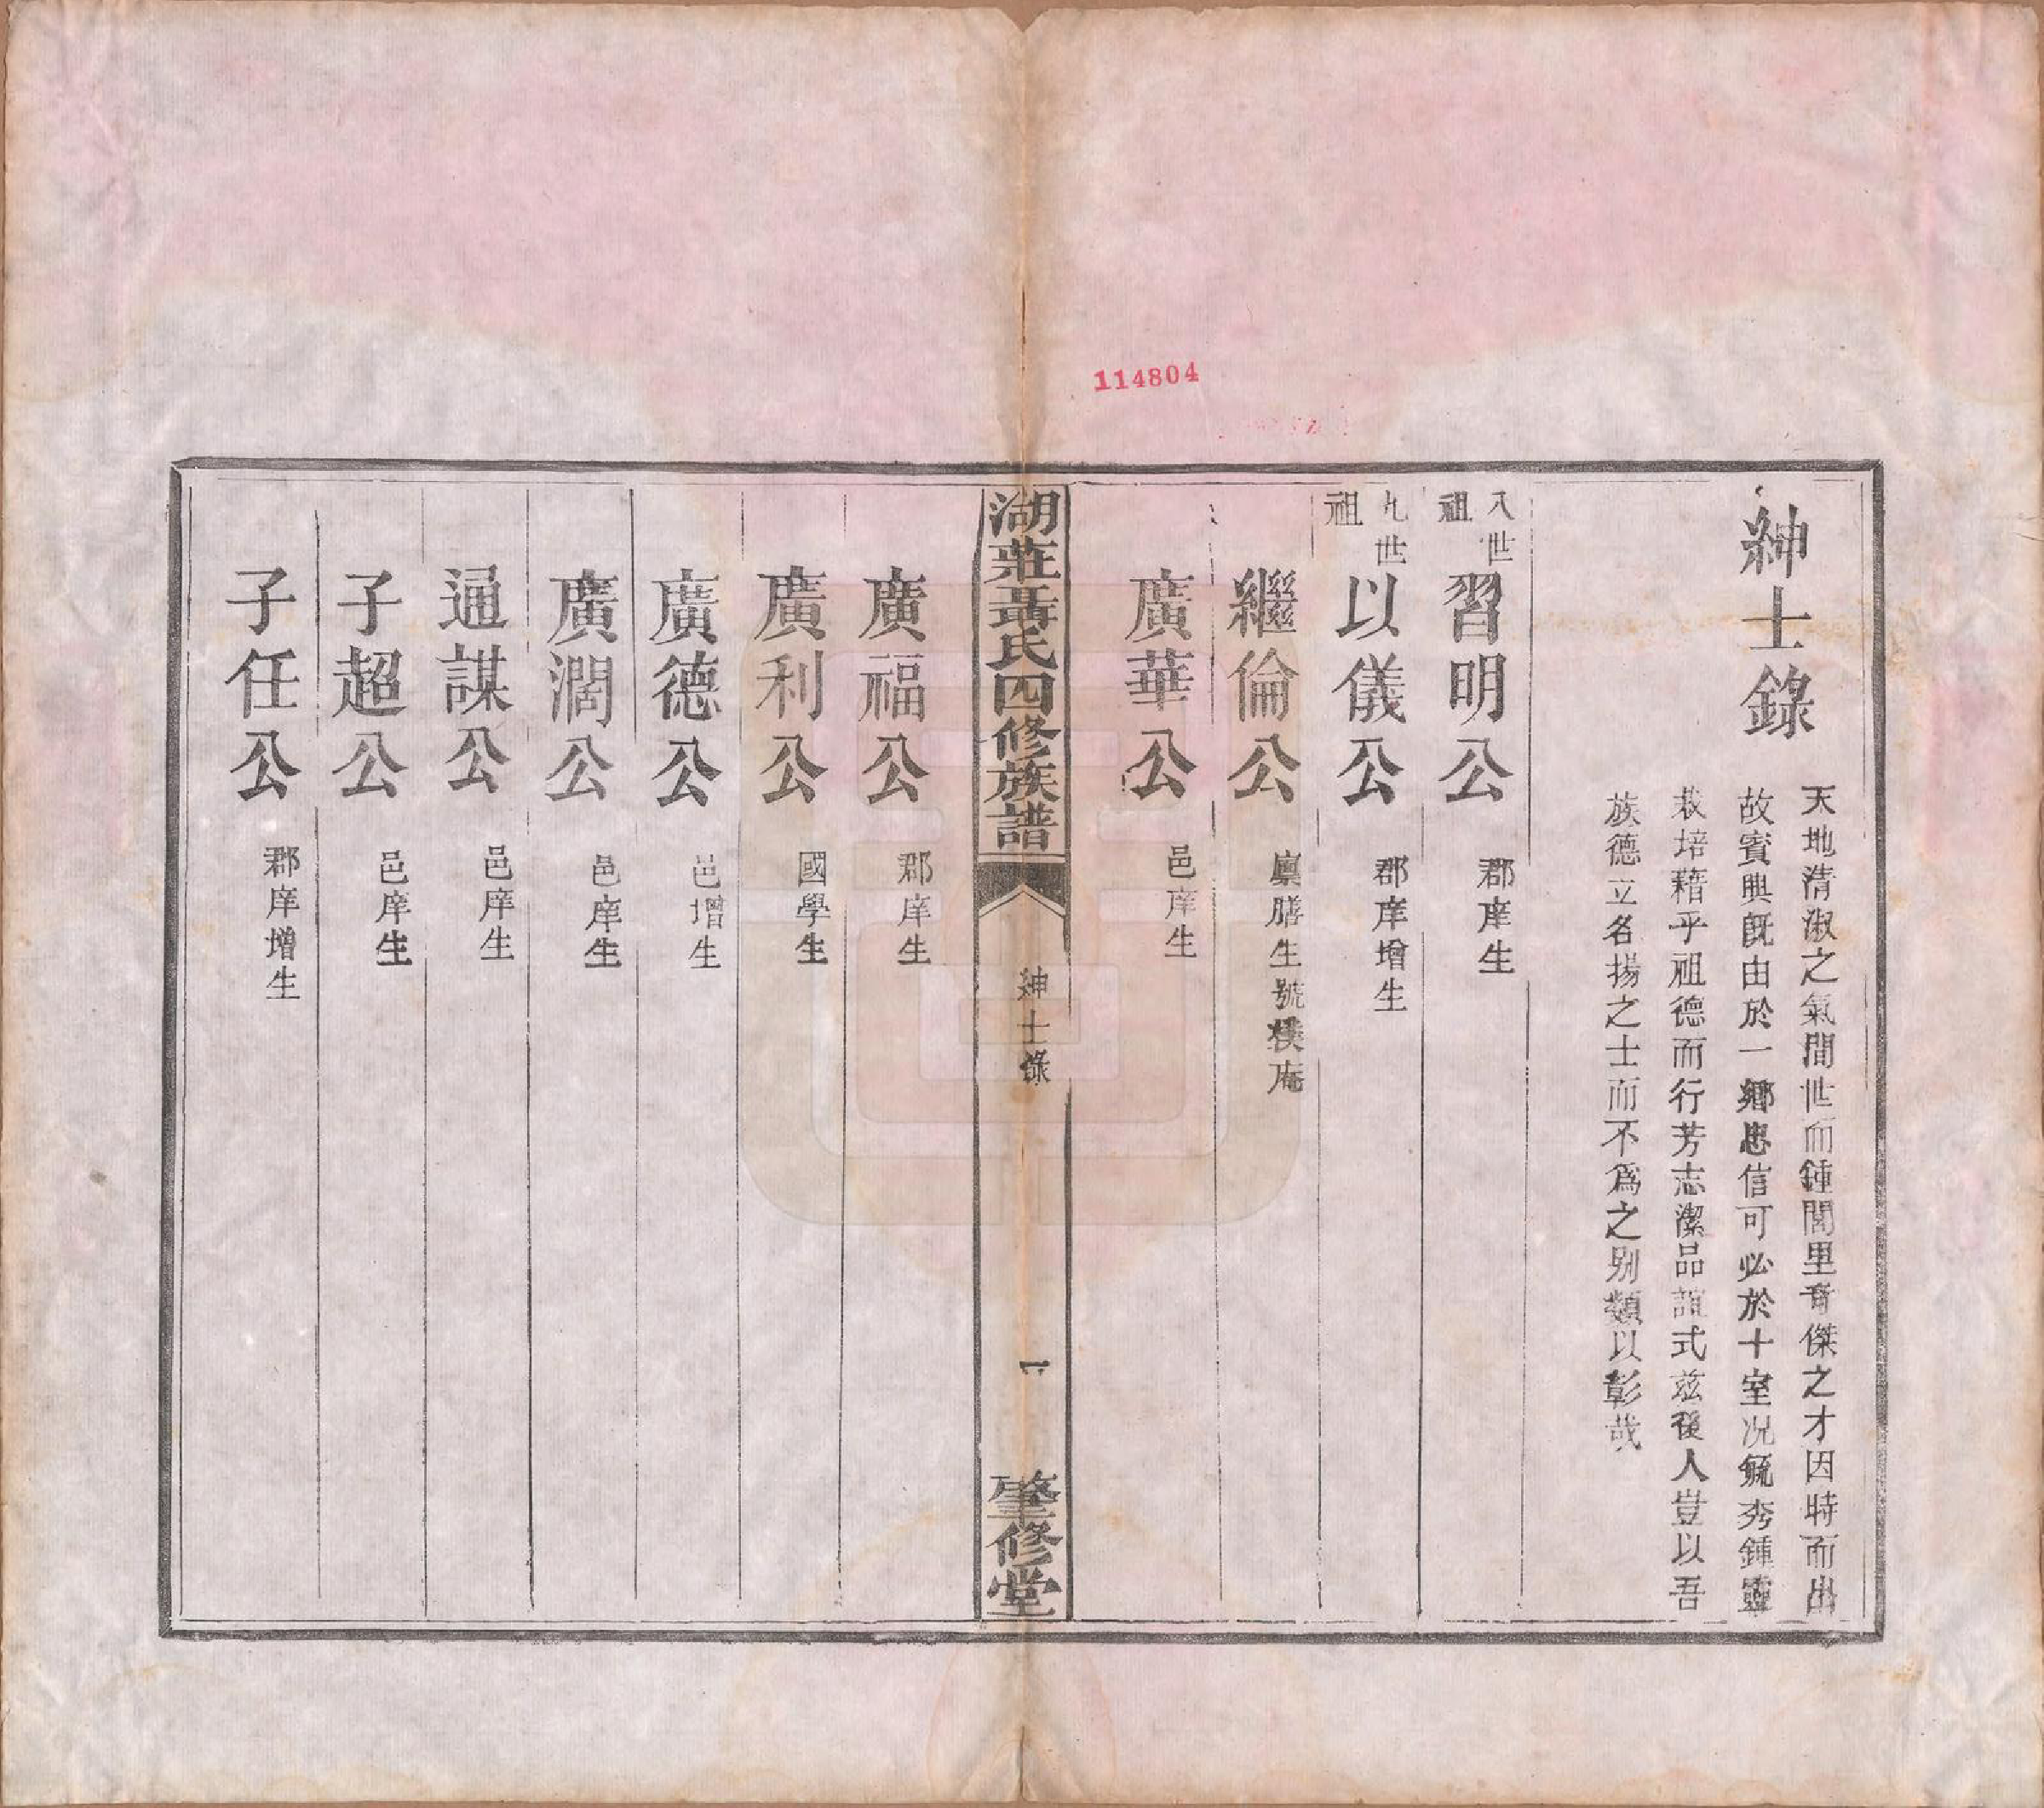 紳士錄
天地清淑之氣間世而鍾閭里奇傑之才因時而出
故賓興既由於一鄉忠信可必於十室况毓秀鍾靈
栽培藉乎祖德而行芳志潔品誼式茲後人豈以吾
族德立名揚之士而不爲之别類以彰哉
八世祖 習明公 郡庠生
九世祖 以儀公 郡庠增生
繼倫公 廩膳生號樸庵
廣華公 邑庠生
湖莊聶氏四修族譜 紳士錄 一 肇修堂
廣福公 郡庠生
廣利公 國學生
廣德公 邑增生
廣濶公 邑庠生
通謀公 邑庠生
子超公 邑庠生
子任公 郡庠增生
114804